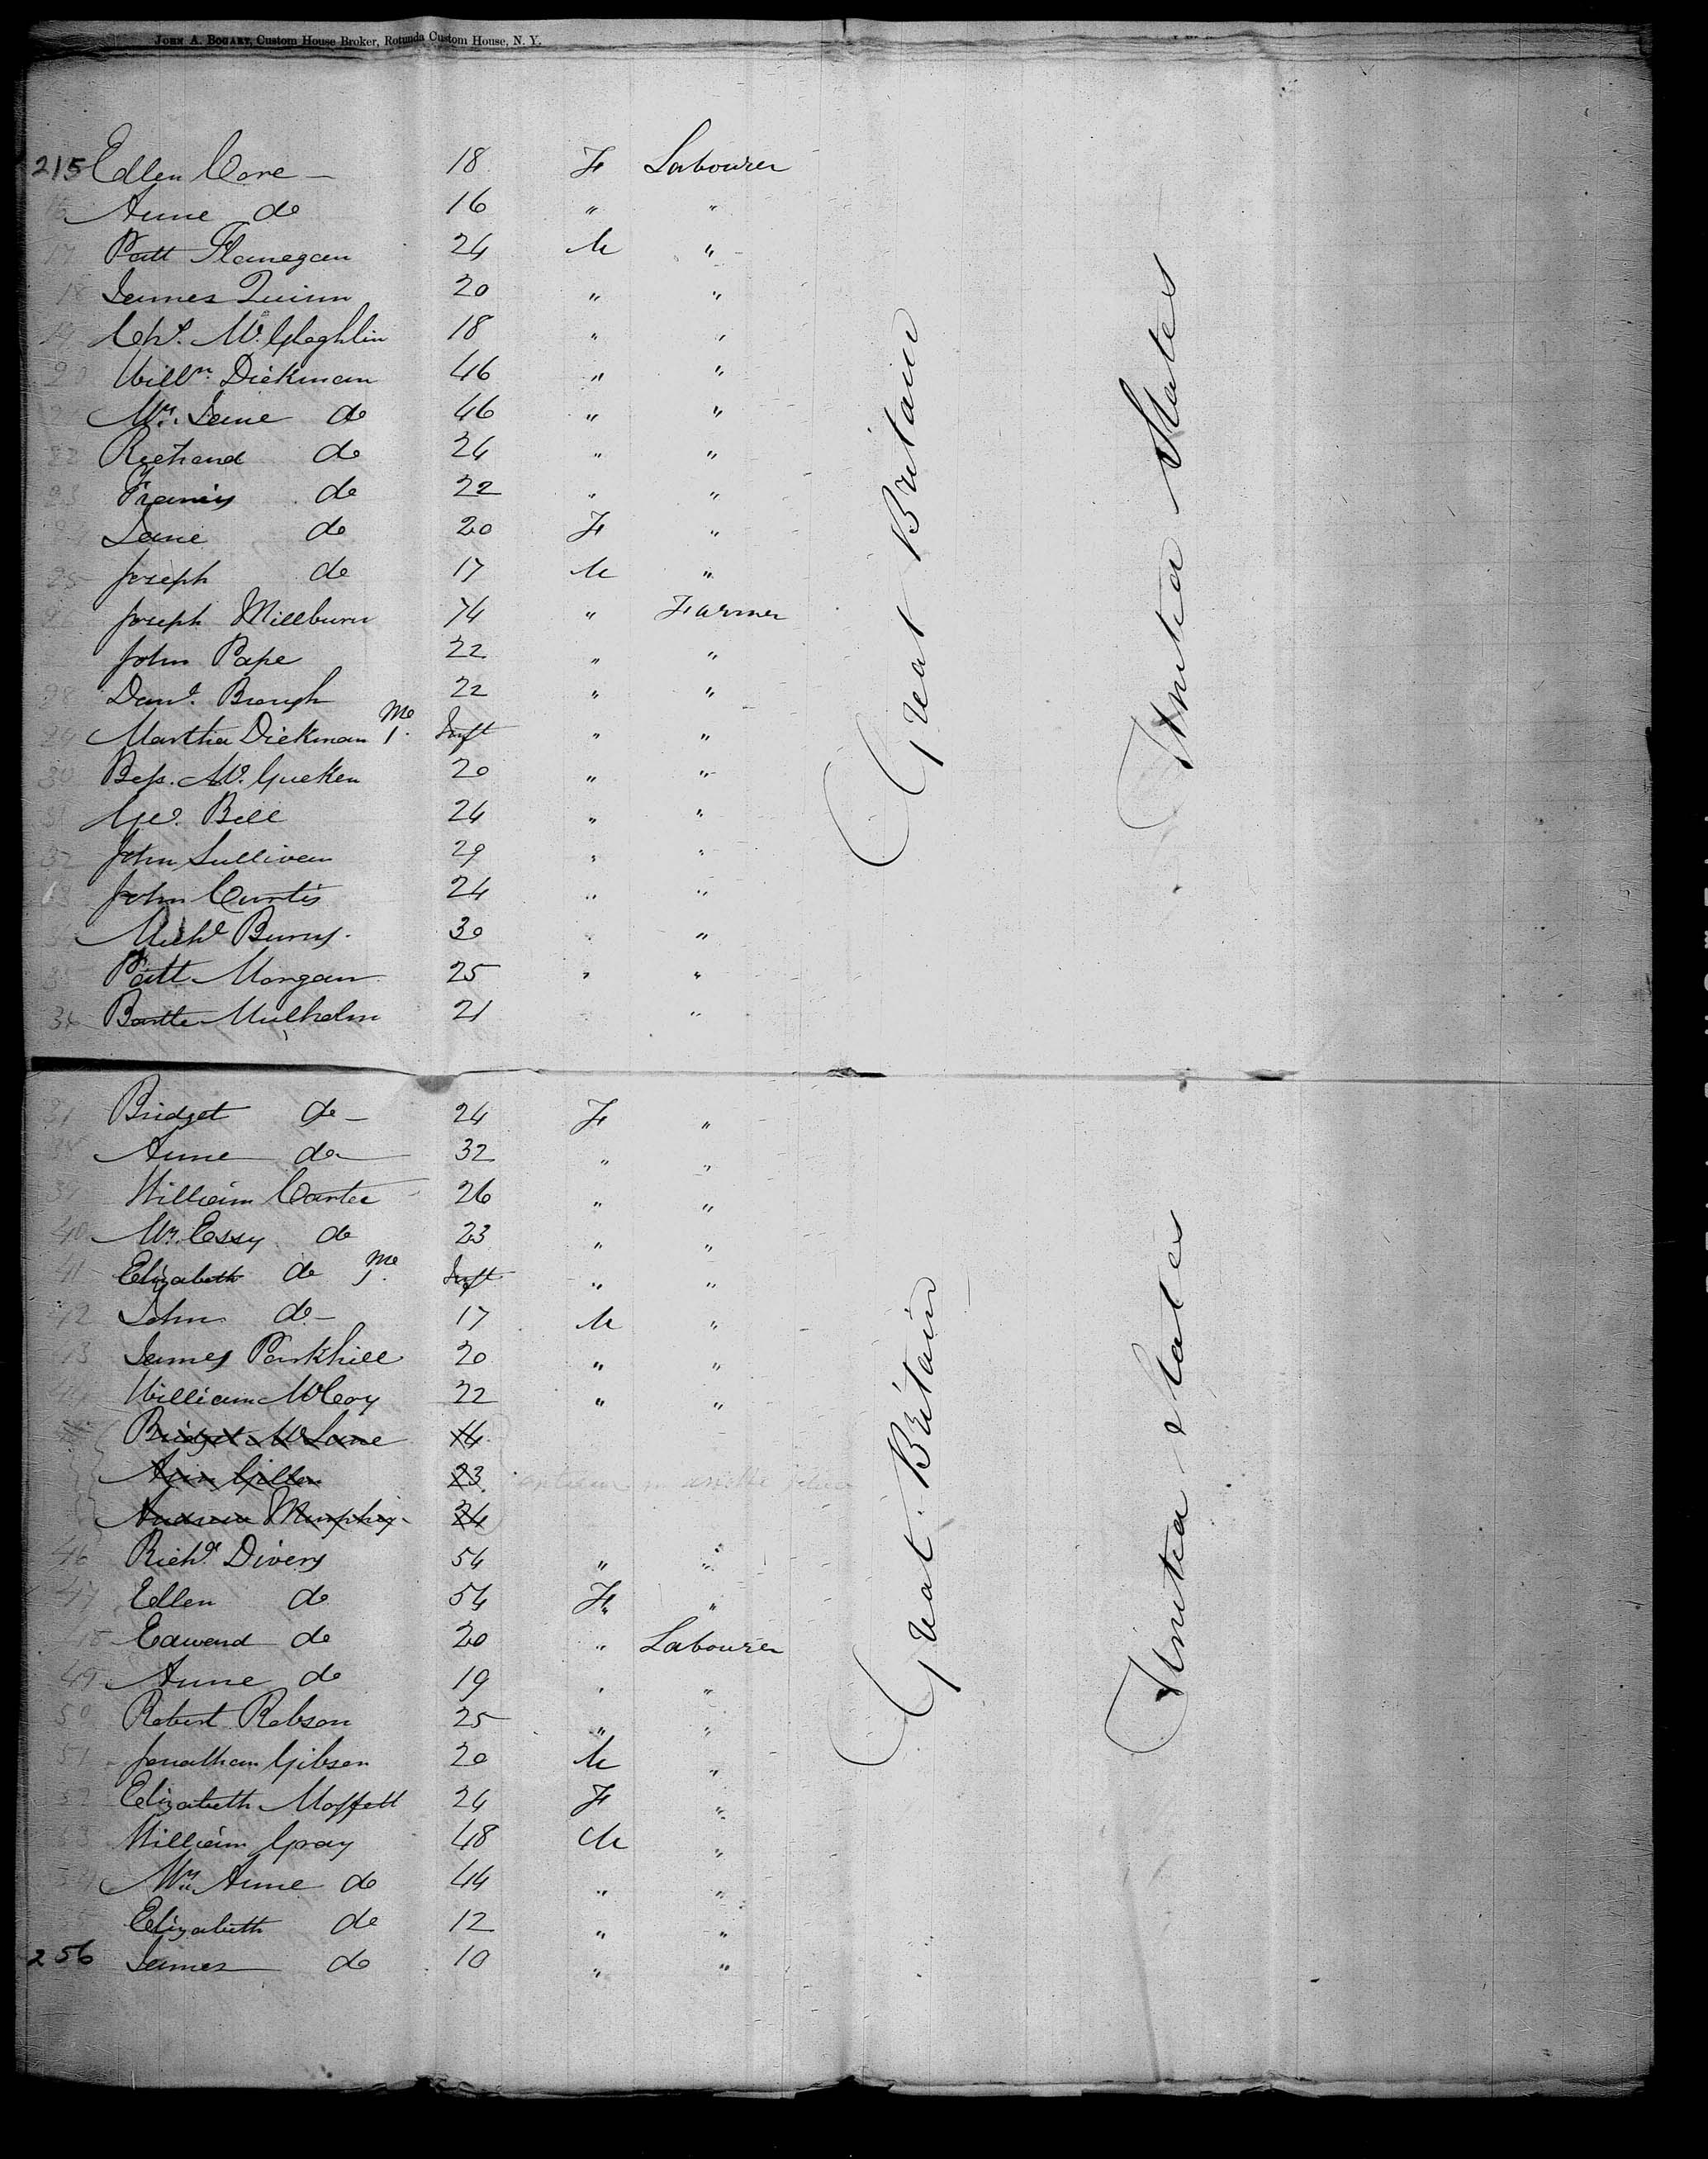 JOHN A. BOGART, Custom House Broker, Rotunda Custom House, N. Y.
215 Ellen Core — 18 F Labourer
16 Anne do 16 " "
17 Patt Flanegan 24 M "
18 James Quinn 20 " "
19 Chs. Mc. Gloghlin 18 " "
20 Willm. Dickman 46 " "
Mrs. Jane do 46 " "
22 Richard do 24 " "
23 Francis do 22 " "
Jane do 20 F "
25 Joseph do 17 M "
26 Joseph Millburn 74 " Farmer
John Pape 22 " "
28 Danl. Brough 22 " "
29 Martha Dickman 1 Mo. Inft " "
30 Bess. Mc. Gucken 20 " "
31 Geo. Bell 24 " "
32 John Sullivan 29 " "
33 John Curtis 24 " "
Michl Burns. 30 " "
35 Patt Morgan 25 " "
36 Bartle Mulholm 21 "
37 Bridget do — 24 F "
38 Anne do — 32 " "
39 William Carter 26 " "
40 Mrs. Essy do 23 " "
41 Elizabeth do 5 Mo. Inft " "
42 John do — 17 M "
43 James Parkhill 20 " "
William McCoy 22 " "
Bridget McLane 14
Ann Gillen 23
Andrew Murphy 24
46 Richd Divers 54 " "
47 Ellen do 54 F "
48 Edward do 20 " Labourer
49 Anne do 19 " "
50 Robert Robson 25 " "
51 Jonathan Gibson 20 M "
52 Elizabeth Moffett 24 F "
53 William Gray 48 M "
54 Mrs. Anne do 44 " "
Elizabeth do 12 " "
256 James do 10 " "
Great Britain
United States
Great Britain
United States